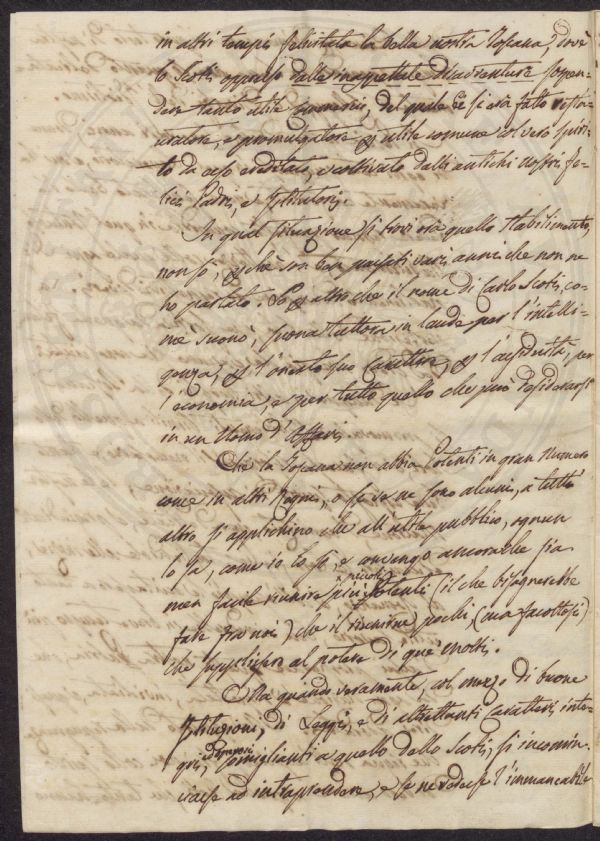 in altri tempi felicitata la bella nostra Toscana, dovè
lo Scotti oppresso dalle inaspettate disavventure sospen-
dere tanto utile commercio, del quale si era fatto resta-
uratore, e promulgatore utile comune col vero spiri-
to da esso ereditato, e coltivato dalli antichi nostri fe-
lici Padri, e Istitutori.
In qual situazione si trovi ora quello stabilimento,
non so, che son ben passati varj anni che non ne
ho parlato. So altro che il nome di Carlo Scotti, co-
me suonò, suona tuttora in laude per l'intelli-
genza, l'onesto suo carattere, l'assiduità, per
l'economia, e per tutto quello che può desiderarsi
in un Uomo d'Affari.
Che la Toscana non abbia Potenti in gran numero
come in altri Regni, o se ve ne sono alcuni, a tutt'
altro si applichino che all'utile pubblico, ognun
lo sa, come io lo sò, e convengo ancora che sia
men facile riunire più piccoli Potenti (il che bisognerebbe
fare fra noi) che il riunirne pochi, (ma facoltosi)
che supplissero al potere di que' molti.
Ma quando veramente, col mezzo di buone
Istituzioni, di Leggi, e di altrettanti Caratteri inte-
gri, somiglianti a quello dello Scotti, si incomin-
ciasse ad intraprendere, e se ne vedesse l'immancabile